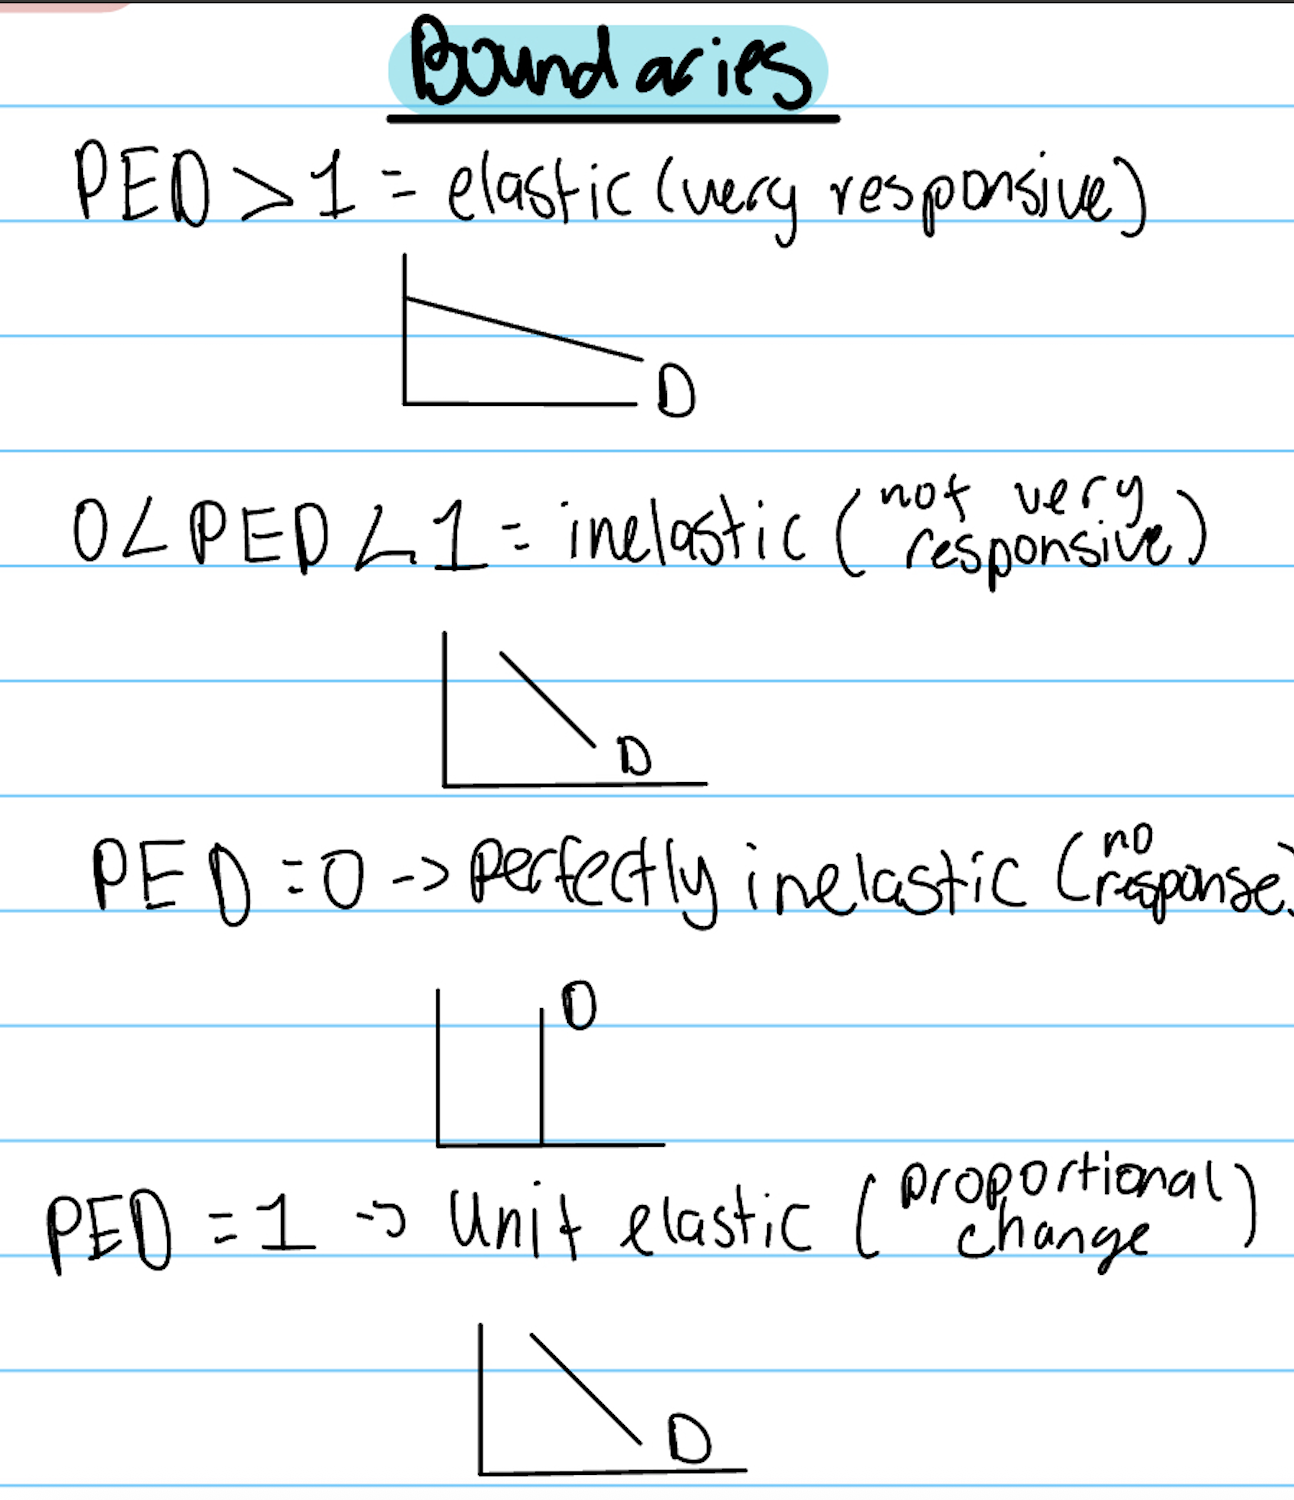 Boundaries
PED > 1 = elastic (very responsive)
D
0 < PED < 1 = inelastic (not very responsive)
D
PED = 0 -> perfectly inelastic (no response)
D
PED = 1 -> Unit elastic (proportional change)
D